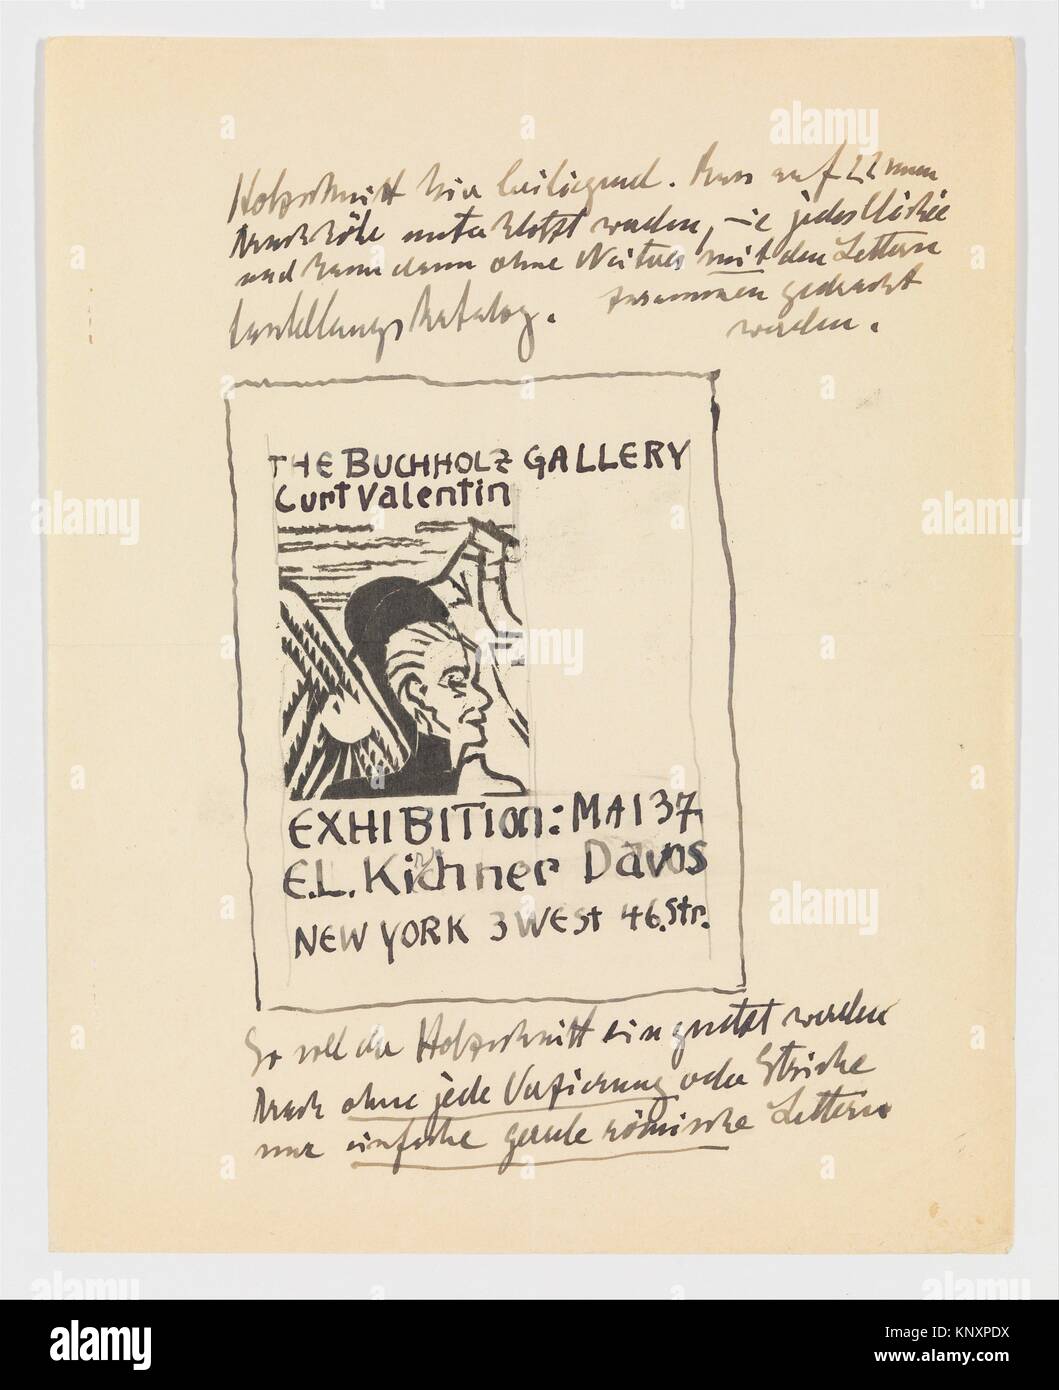 Holzschnitt hier beiliegend. Kann auf 22 mm
Druckhöhe unterklotzt werden, wie jedes Clichée
und kann dann ohne Weiteres mit den Lettern
zusammen gedruckt
Katalog.
werden.
THE BUCHHOLZ GALLERY
Curt Valentin
EXHIBITION: MAI 37
E.L. Kirchner Davos
NEW YORK 3 WEST 46. Str.
So soll der Holzschnitt eingesetzt werden
Druck ohne jede Verzierung oder Striche
nur einfache gerade römische Lettern
alamy
a
Image ID: KNXPDX
www.alamy.com